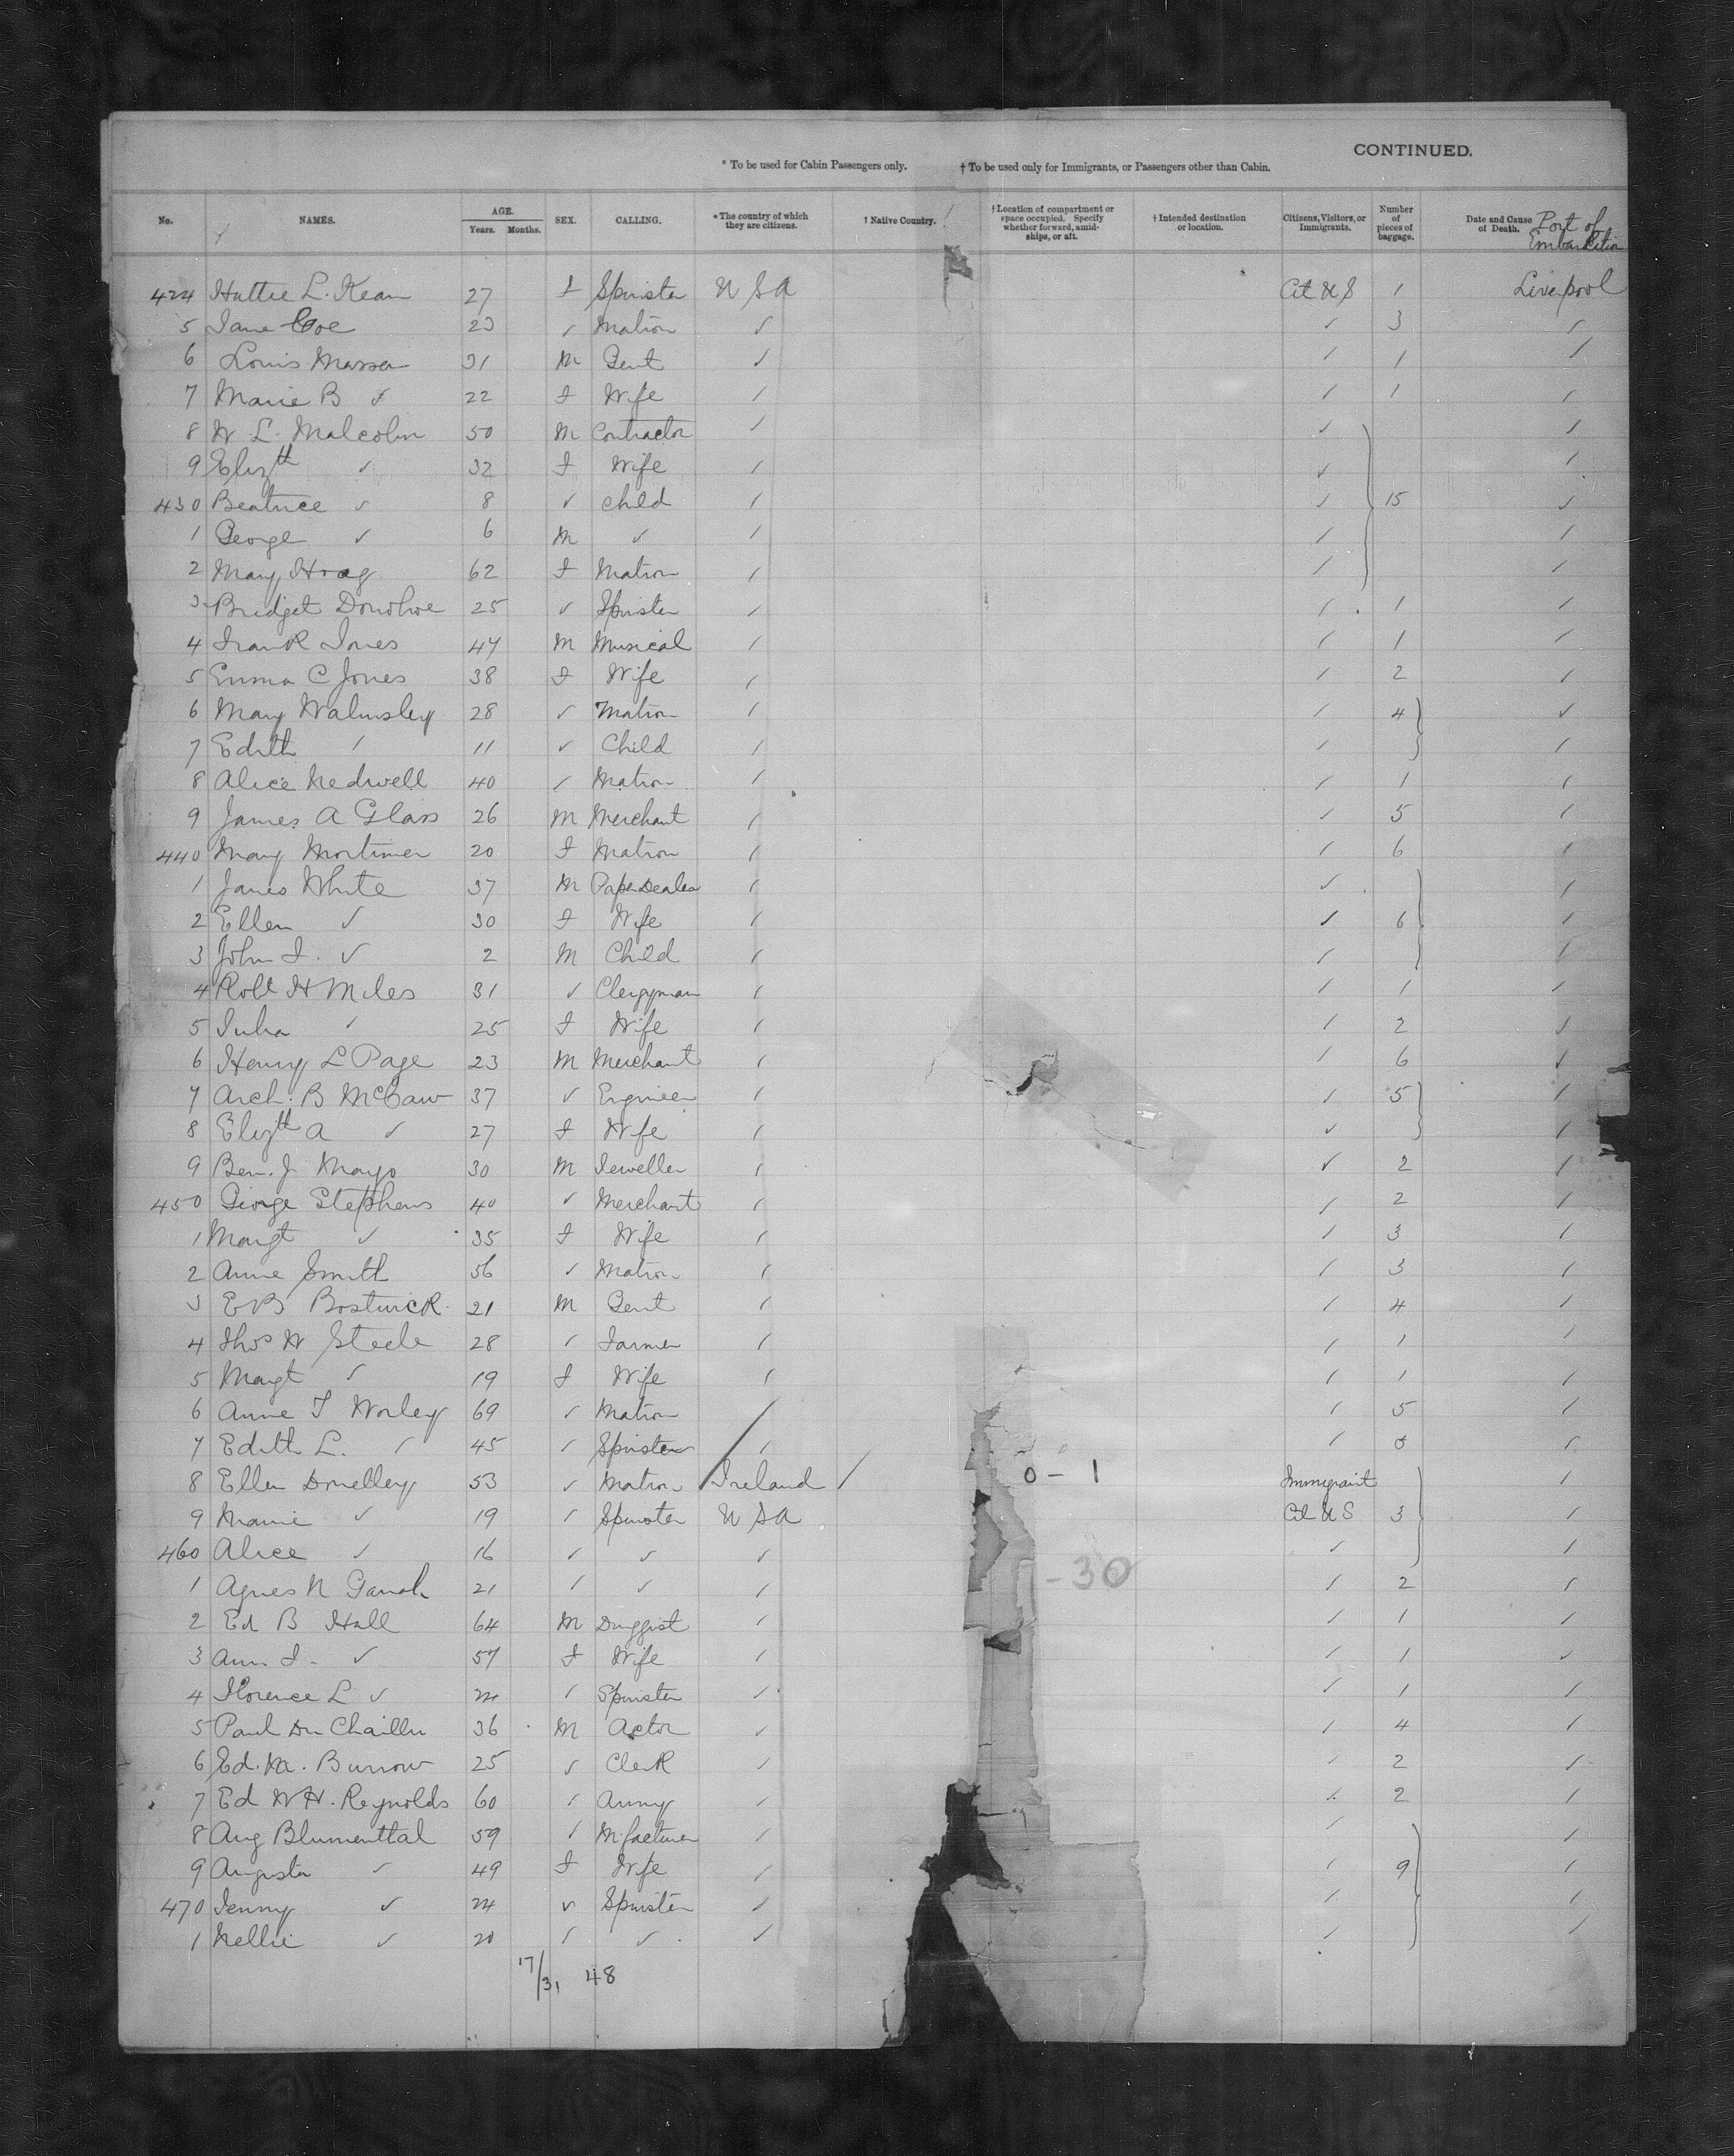 CONTINUED.
* To be used for Cabin Passengers only. † To be used only for Immigrants, or Passengers other than Cabin.
No. NAMES. AGE. Years. Months. SEX. CALLING. * The country of which they are citizens. † Native Country. † Location of compartment or space occupied. Specify whether forward, amidships, or aft. † Intended destination or location. Citizens, Visitors, or Immigrants. Number of pieces of baggage. Date and Cause of Death. Port of Embarkation
424 Hattie L. Kean 27 F Spinster U S A Cit U S 1 Liverpool
5 Jane Coe 23 ✓ Matron ✓ ✓ 3 ✓
6 Louis Massen 31 M Gent ✓ ✓ 1 ✓
7 Marie B ✓ 22 F Wife ✓ ✓ 1 ✓
8 W L. Malcolm 50 M Contractor ✓ ✓ ✓
9 Elizth ✓ 32 F Wife ✓ ✓ ✓
430 Beatrice ✓ 8 ✓ child ✓ ✓ 15 ✓
1 George ✓ 6 M ✓ ✓ ✓ ✓
2 Mary Hoag 62 F Matron ✓ ✓ ✓
3 Bridget Donohoe 25 ✓ Spinster ✓ ✓ 1 ✓
4 Frank Jones 47 M Musical ✓ ✓ 1 ✓
5 Emma C Jones 38 F Wife ✓ ✓ 2 ✓
6 Mary Walmsley 28 ✓ Matron ✓ ✓ 4 ✓
7 Edith ✓ 11 ✓ Child ✓ ✓ ✓
8 Alice Nedwell 40 ✓ Matron ✓ ✓ 1 ✓
9 James A Glass 26 M Merchant ✓ ✓ 5 ✓
440 Mary Mortimer 20 F Matron ✓ ✓ 6 ✓
1 James White 37 M Paper Dealer ✓ ✓ ✓
2 Ellen ✓ 30 F Wife ✓ ✓ 6 ✓
3 John F. ✓ 2 M Child ✓ ✓ ✓
4 Robt H Miles 31 ✓ Clergyman ✓ ✓ 1 ✓
5 Julia ✓ 25 F Wife ✓ ✓ 2 ✓
6 Henry L Page 23 M Merchant ✓ ✓ 6 ✓
7 Arch. B McCaw 37 ✓ Engineer ✓ ✓ 5 ✓
8 Elizth A ✓ 27 F Wife ✓ ✓ ✓
9 Ben. J Mayo 30 M Jeweller ✓ ✓ 2 ✓
450 George Stephens 40 ✓ Merchant ✓ ✓ 2 ✓
1 Margt ✓ 35 F Wife ✓ ✓ 3 ✓
2 Anne Smith 56 ✓ Matron ✓ ✓ 3 ✓
3 E B Bostwick 21 M Gent ✓ ✓ 4 ✓
4 Thos W Steele 28 ✓ Farmer ✓ ✓ 1 ✓
5 Margt ✓ 19 F Wife ✓ ✓ 1 ✓
6 Anne T Worley 69 ✓ Matron ✓ ✓ 5 ✓
7 Edith L. ✓ 45 ✓ Spinster ✓ ✓ 0 ✓
8 Ellen Donelley 53 ✓ Matron Ireland ✓ 0 - 1 Immigrant ✓
9 Mamie ✓ 19 ✓ Spinster U S A Cit U S 3 ✓
460 Alice ✓ 16 ✓ ✓ ✓ ✓ ✓
1 Agnes N 21 ✓ ✓ ✓ - 30 ✓ 2 ✓
2 Ed B Hall 64 M Druggist ✓ ✓ 1 ✓
3 Ann F. ✓ 57 F Wife ✓ ✓ 1 ✓
4 Florence L ✓ 24 ✓ Spinster ✓ ✓ 1 ✓
5 Paul Du Chaillu 36 M Actor ✓ ✓ 4 ✓
6 Ed. M. Burrow 25 ✓ Clerk ✓ ✓ 2 ✓
7 Ed W H. Reynolds 60 ✓ Army ✓ ✓ 2 ✓
8 Aug Blumenthal 59 ✓ M.facturer ✓ ✓ ✓
9 Augusta ✓ 49 F Wife ✓ ✓ 9 ✓
470 Jenny ✓ 24 ✓ Spinster ✓ ✓ ✓
1 Nellie ✓ 20 ✓ ✓ ✓ ✓ ✓
17/31 48